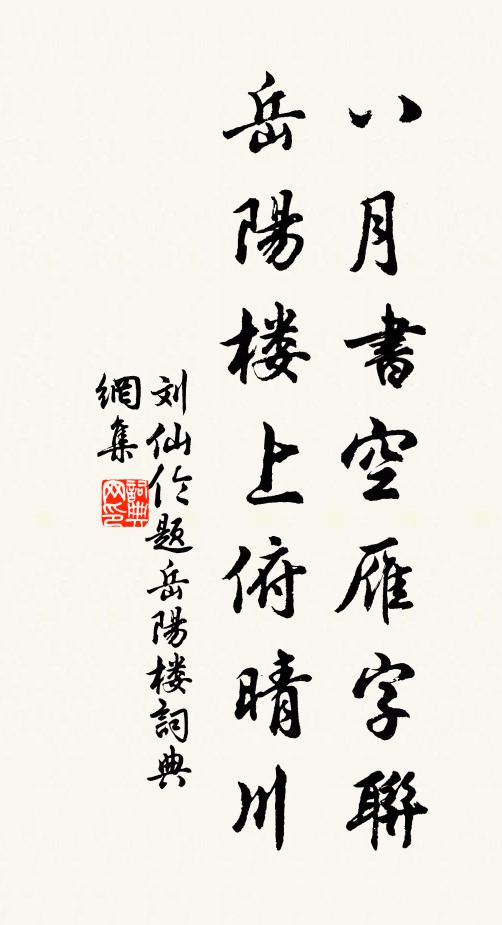 八月書空雁字聯
岳陽楼上俯晴川
刘仙伦题岳陽楼詞典
網集
詞典網印